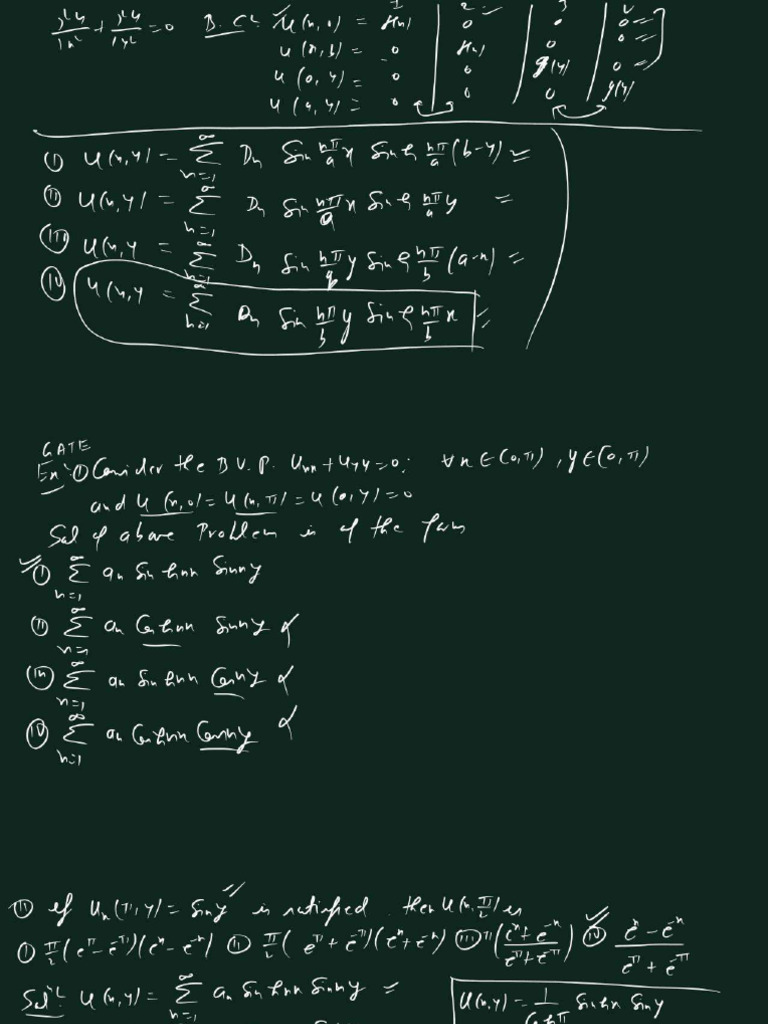 ∂²u/∂x² + ∂²u/∂y² = 0 B.C². u(x,0) = f(x) | 0 | 0 | 0
u(x,b) = 0 | f(x) | 0 | 0
u(0,y) = 0 | 0 | g(y) | 0
u(a,y) = 0 | 0 | 0 | g(y)
(I) u(x,y) = ∑_{n=1}^{∞} Dn Sin nπ/a x Sinh nπ/a (b-y)
(II) u(x,y) = ∑_{n=1}^{∞} Dn Sin nπ/a x Sinh nπ/a y
(III) u(x,y = ∑_{n=1}^{∞} Dn Sin nπ/b y Sinh nπ/b (a-x)
(IV) u(x,y = ∑_{n=1}^{∞} Dn Sin nπ/b y Sinh nπ/b x
GATE
Ex: ① Consider the B.V.P. Uxx + Uyy = 0; ∀ x ∈ (0,π), y ∈ (0,π)
and u(x,0) = u(x,π) = u(0,y) = 0
Sol of above Problem is of the form
(I) ∑_{n=1}^{∞} an Sinhnx Sinny
(II) ∑_{n=1}^{∞} an Coshnx Sinny
(III) ∑_{n=1}^{∞} an Sinhnx Cosny
(IV) ∑_{n=1}^{∞} an Coshnx Cosny
(II) if Ux(π,y) = Siny is satisfied then u(x, π/2) is
(I) π/2 (e^π - e^-π)(e^x - e^-x) (II) π/2 (e^π + e^-π)(e^x + e^-x) (III) π (e^x + e^-x / e^π + e^-π) (IV) e^x - e^-x / e^π + e^-π
Sol: u(x,y) = ∑_{n=1}^{∞} an Sinhnx Sinny
u(x,y) = 1/Coshπ Sinhx Siny